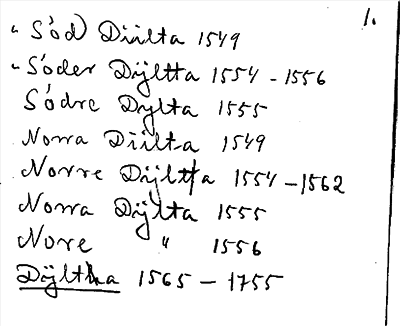 1.
" Söd Düülta 1549
" Söder Dÿltta 1554 - 1556
Södre Dÿlta 1555
Norra Düülta 1549
Norre Dÿltta 1554 - 1562
Norra Dÿlta 1555
Nore " 1556
Dÿltha 1565 - 1755